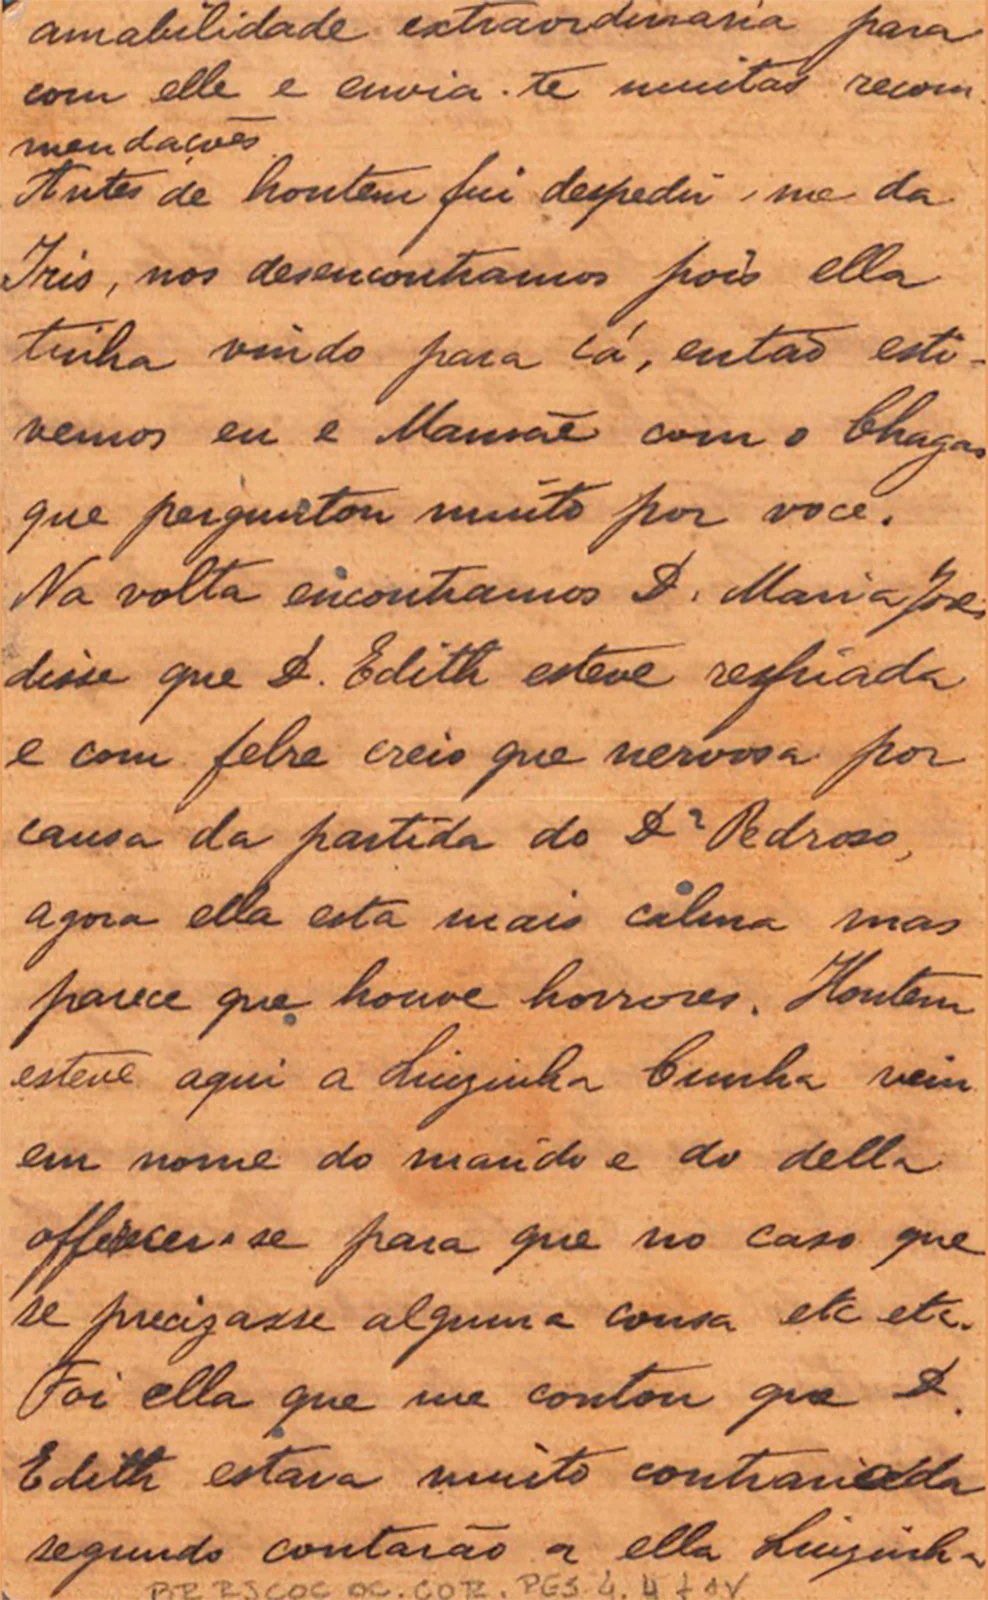 amabilidade extraordinaria para
com elle e envia-te muitas recom-
mendações.
Antes de hontem fui despedir-me da
Iris, nos desencontramos pois ella
tinha vindo para cá, então esti-
vemos eu e Mamãe com o Chagas
que perguntou muito por voce.
Na volta encontramos D. Maria José
disse que D. Edith esteve resfriada
e com febre creio que nervosa por
causa da partida do Dr Pedroso,
agora ella esta mais calma mas
parece que houve horrores. Hontem
esteve aqui a Luizinha Cunha veiu
em nome do marido e do della
offerecer-se para que no caso que
se precizasse alguma cousa etc etc.
Foi ella que me contou que D.
Edith estava muito contrariada
segundo contarão a ella Luizinha
BR RJCOC OC. COR. PGS 4. 4 f 1V